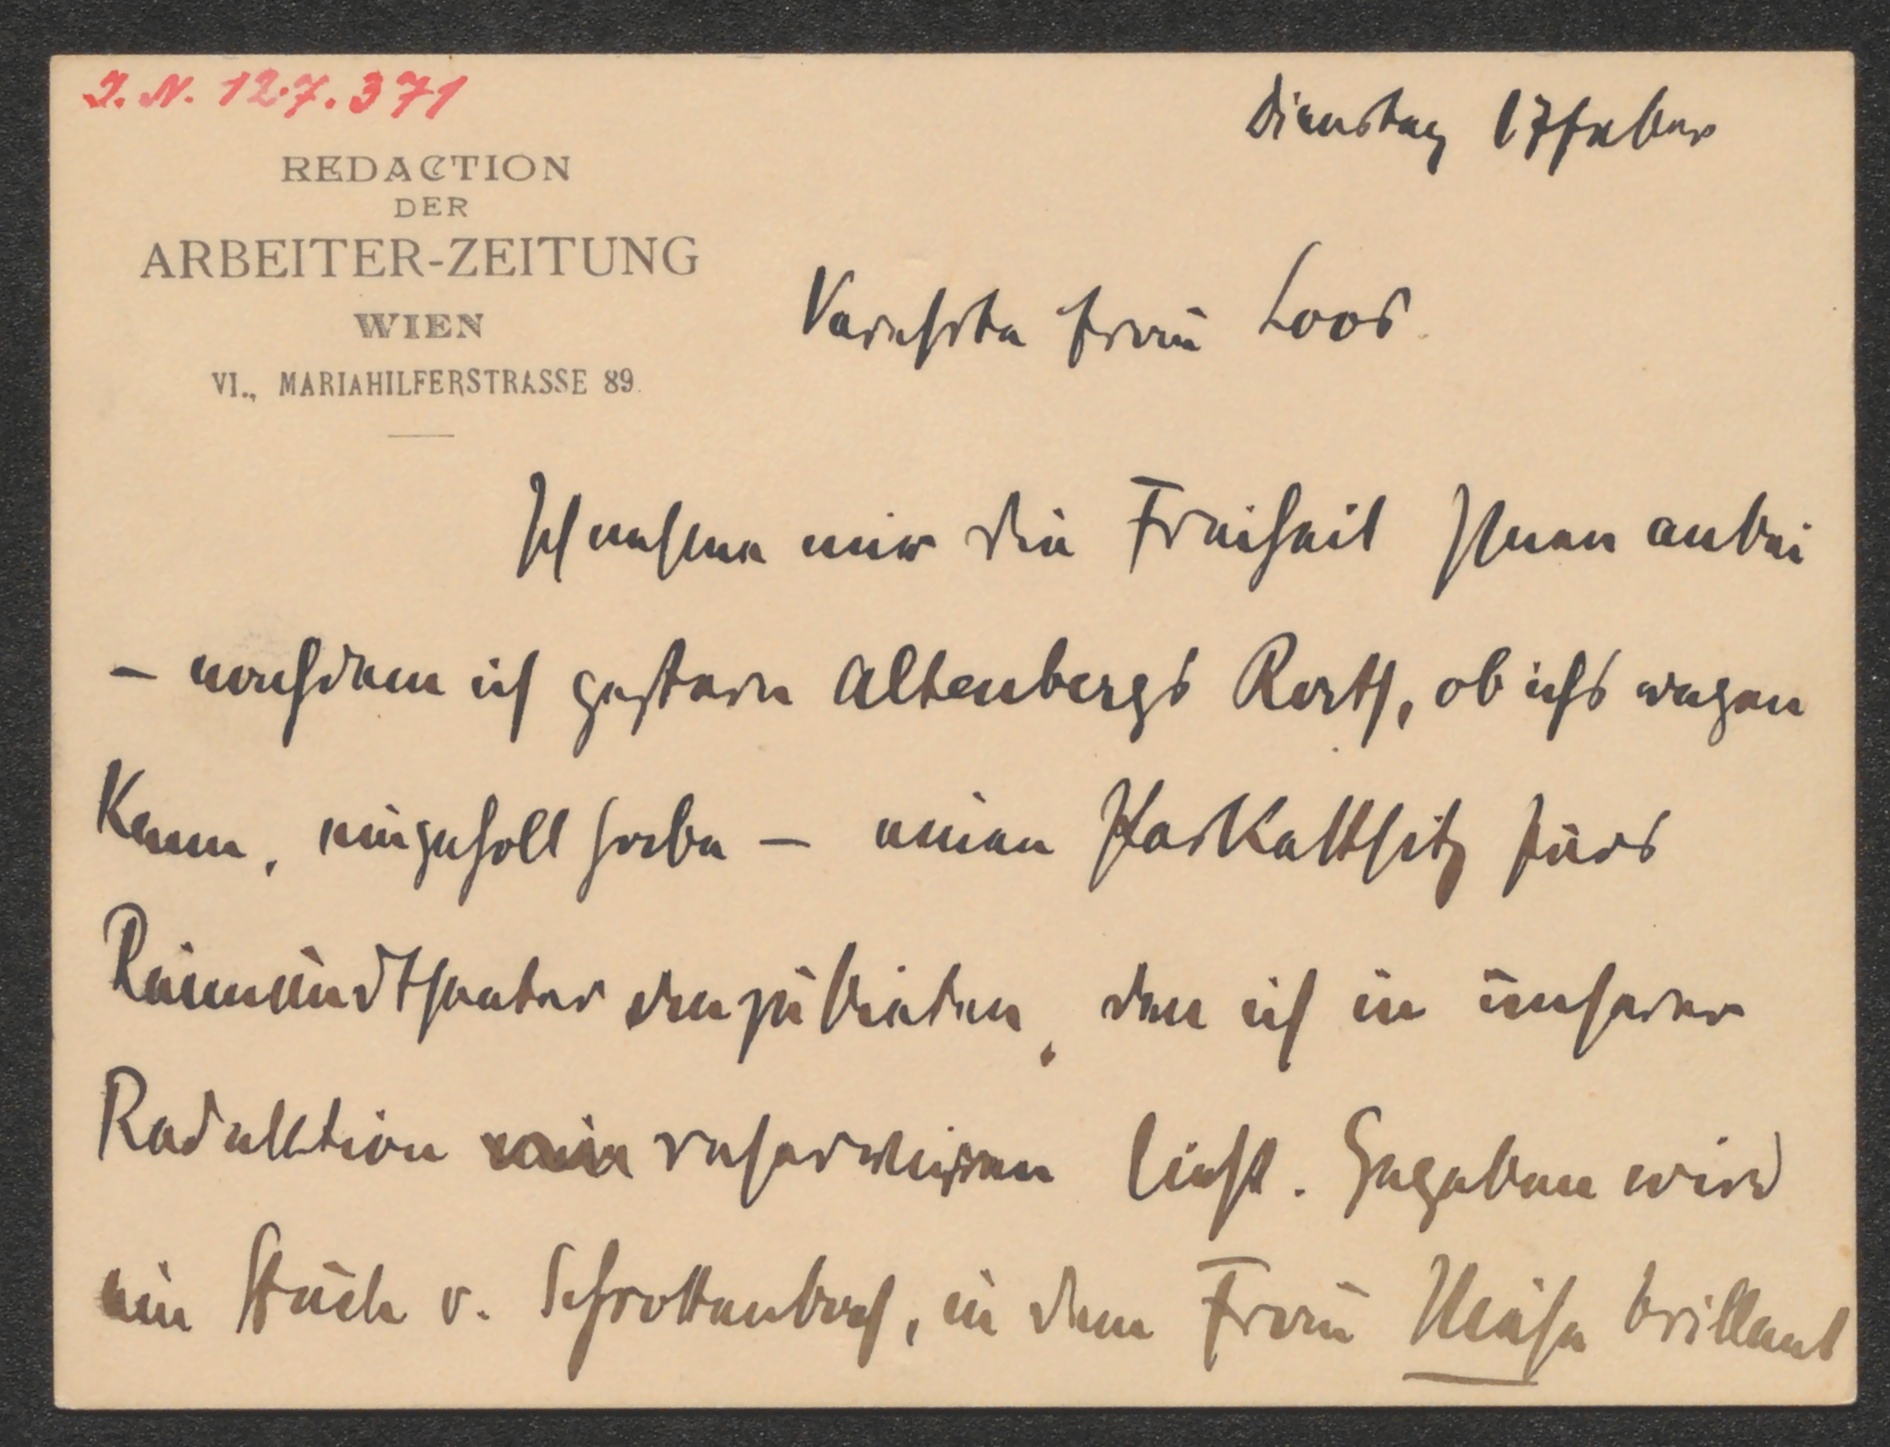 I. N. 127.371
Dienstag 17 Feber
REDACTION
DER
ARBEITER-ZEITUNG
WIEN
VI., MARIAHILFERSTRASSE 89.
Verehrte Frau Loos.
Ich nehme mir die Freiheit Ihnen anbei
– nachdem ich gestern Altenbergs Rath, ob ichs wagen
kann, eingeholt habe – einen Parkettsitz fürs
Raimundtheater anzubieten, den ich in unserer
Redaktion reservieren ließ. Gegeben wird
ein Stück v. Schrottenbach, in dem Frau brillant